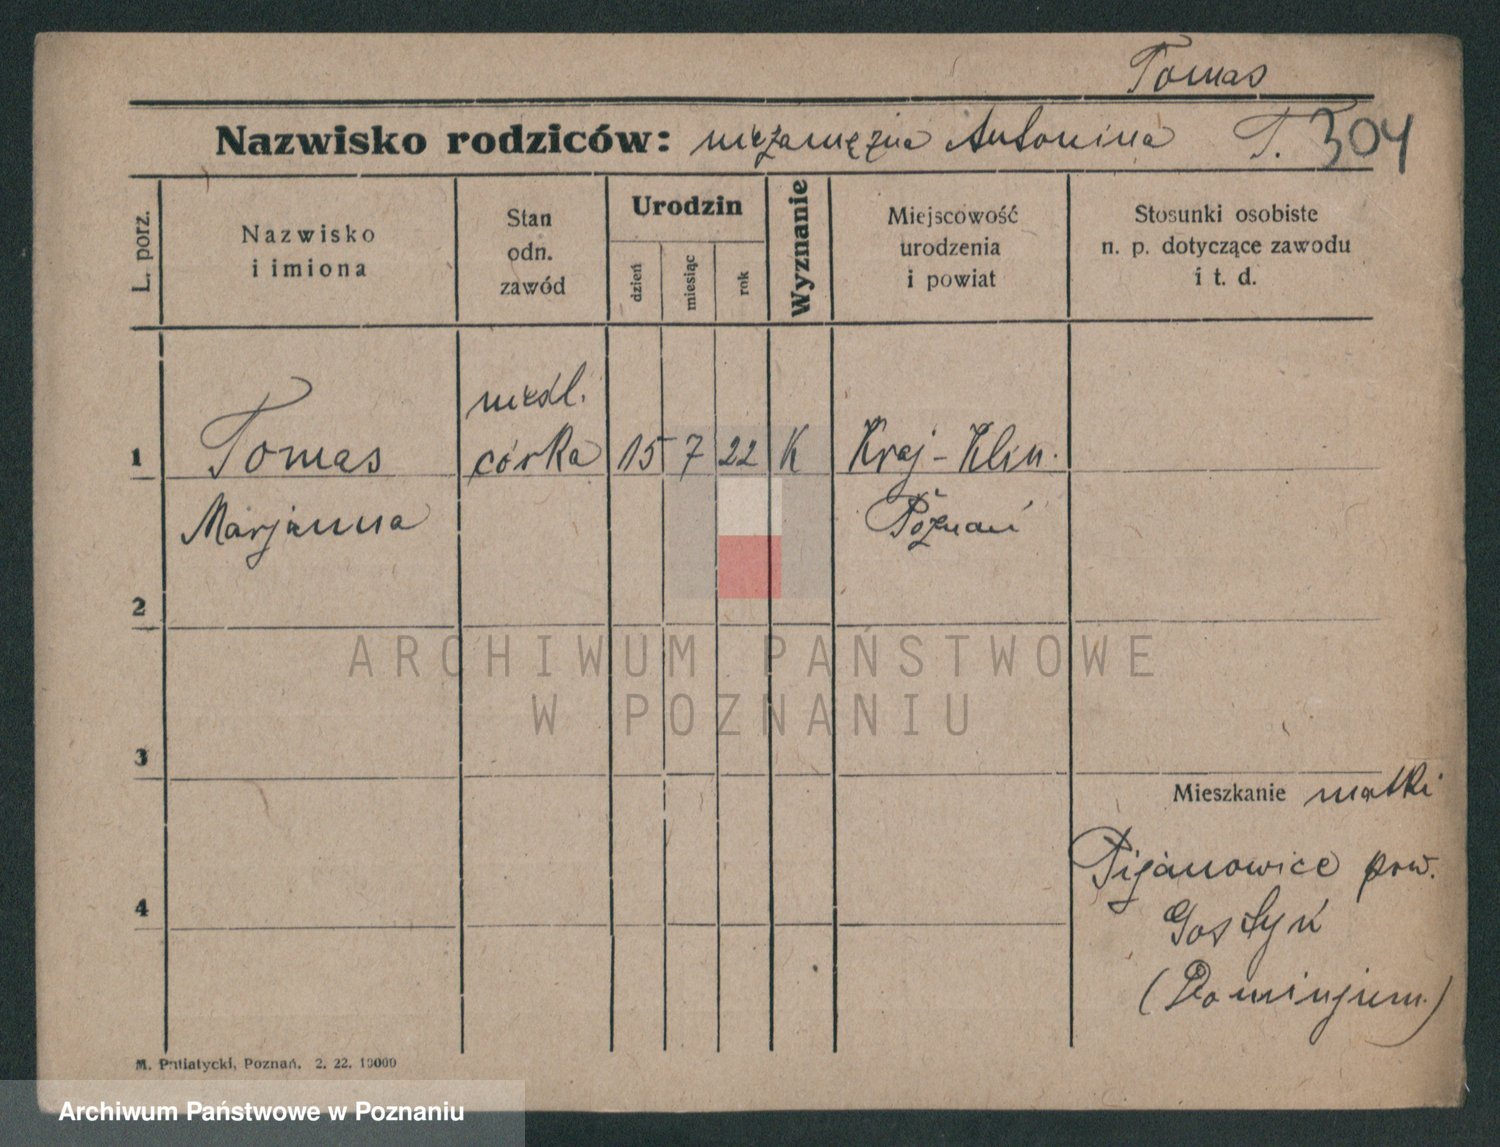 Tomas
Nazwisko rodziców: niezamężna Antonina T. 304
L. porz.
Nazwisko
i imiona
Stan
odn.
zawód
Urodzin
dzień
miesiąc
rok
Wyznanie
Miejscowość
urodzenia
i powiat
Stosunki osobiste
n. p. dotyczące zawodu
i t. d.
1 Tomas
Marjanna
nieśl.
córka
15 7 22 K
Kraj-Klin.
Poznań
2
3
4
Mieszkanie matki
Pijanowice pow.
Gostyń
(Dominjum.)
M. Putiatycki, Poznań. 2. 22. 10000
ARCHIWUM PAŃSTWOWE
W POZNANIU
Archiwum Państwowe w Poznaniu